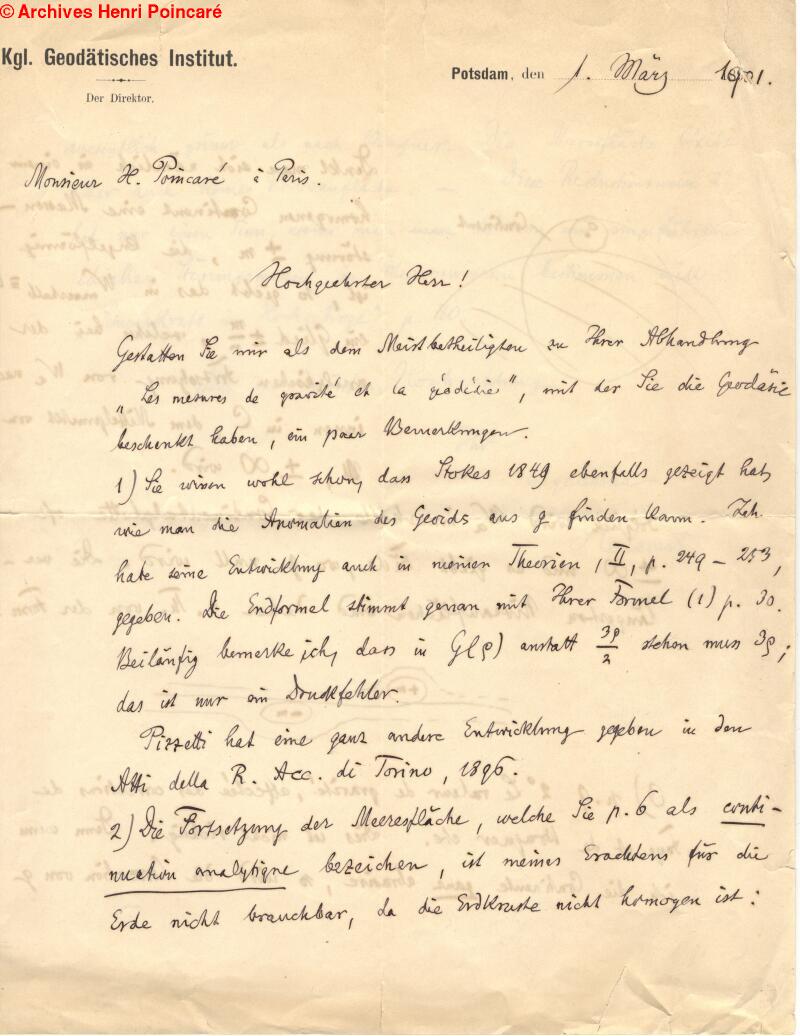 © Archives Henri Poincaré
Kgl. Geodätisches Institut.
Der Direktor.
Potsdam, den 1. März 1901.
Monsieur H. Poincaré à Paris.
Hochgeehrter Herr!
Gestatten Sie mir als dem Meistbetheiligten zu Ihrer Abhandlung
„Les mesures de gravité et la géodésie", mit der Sie die Geodäsie
beschenkt haben, ein paar Bemerkungen.
1) Sie wissen wohl schon, dass Stokes 1849 ebenfalls gezeigt hat,
wie man die Anomalien des Geoids aus g finden kann. Ich
habe seine Entwicklung auch in meinen Theorien, II, p. 249 – 253,
gegeben. Die Endformel stimmt genau mit Ihrer Formel (1) p. 30.
Beiläufig bemerke ich, dass in G(ρ) anstatt 3ρ/2 stehen muss 3ρ;
das ist nur ein Druckfehler.
Pizzetti hat eine ganz andere Entwicklung gegeben in den
Atti della R. Acc. di Torino, 1896.
2) Die Fortsetzung der Meeresfläche, welche Sie p. 6 als conti-
nuation analytique bezeichen, ist meines Erachtens für die
Erde nicht brauchbar, da die Erdkruste nicht homogen ist: